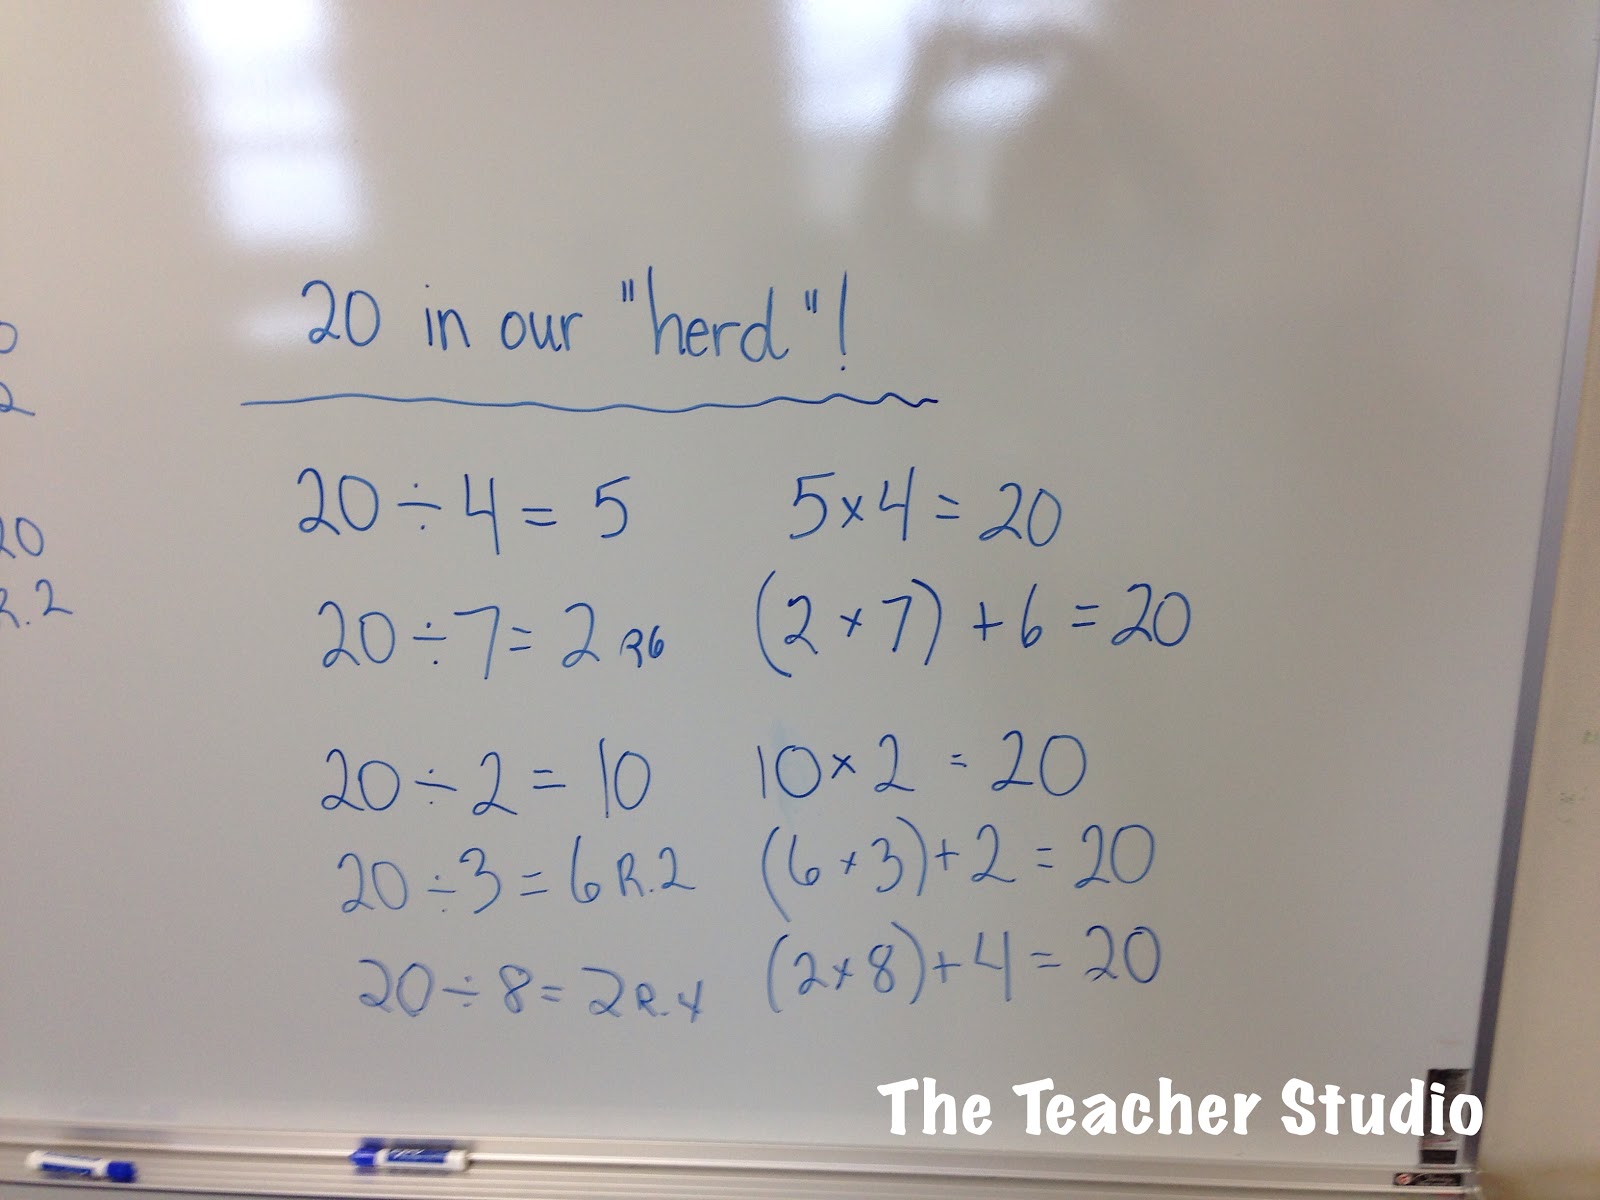 20 in our "herd"!
20 ÷ 4 = 5 5 × 4 = 20
20 ÷ 7 = 2 R6 (2 × 7) + 6 = 20
20 ÷ 2 = 10 10 × 2 = 20
20 ÷ 3 = 6 R.2 (6 × 3) + 2 = 20
20 ÷ 8 = 2 R.4 (2 × 8) + 4 = 20
0
2
20
R.2
The Teacher Studio